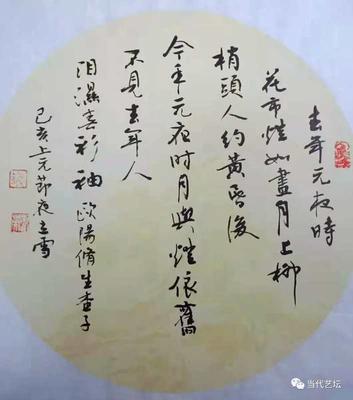 去年元夜時
花市燈如盡月上柳
梢頭人約黃昏後
今年元夜时月與燈依舊
不見去年人
泪濕春衫袖 歐陽脩生查子
己亥上元節夜立雪
当代艺坛